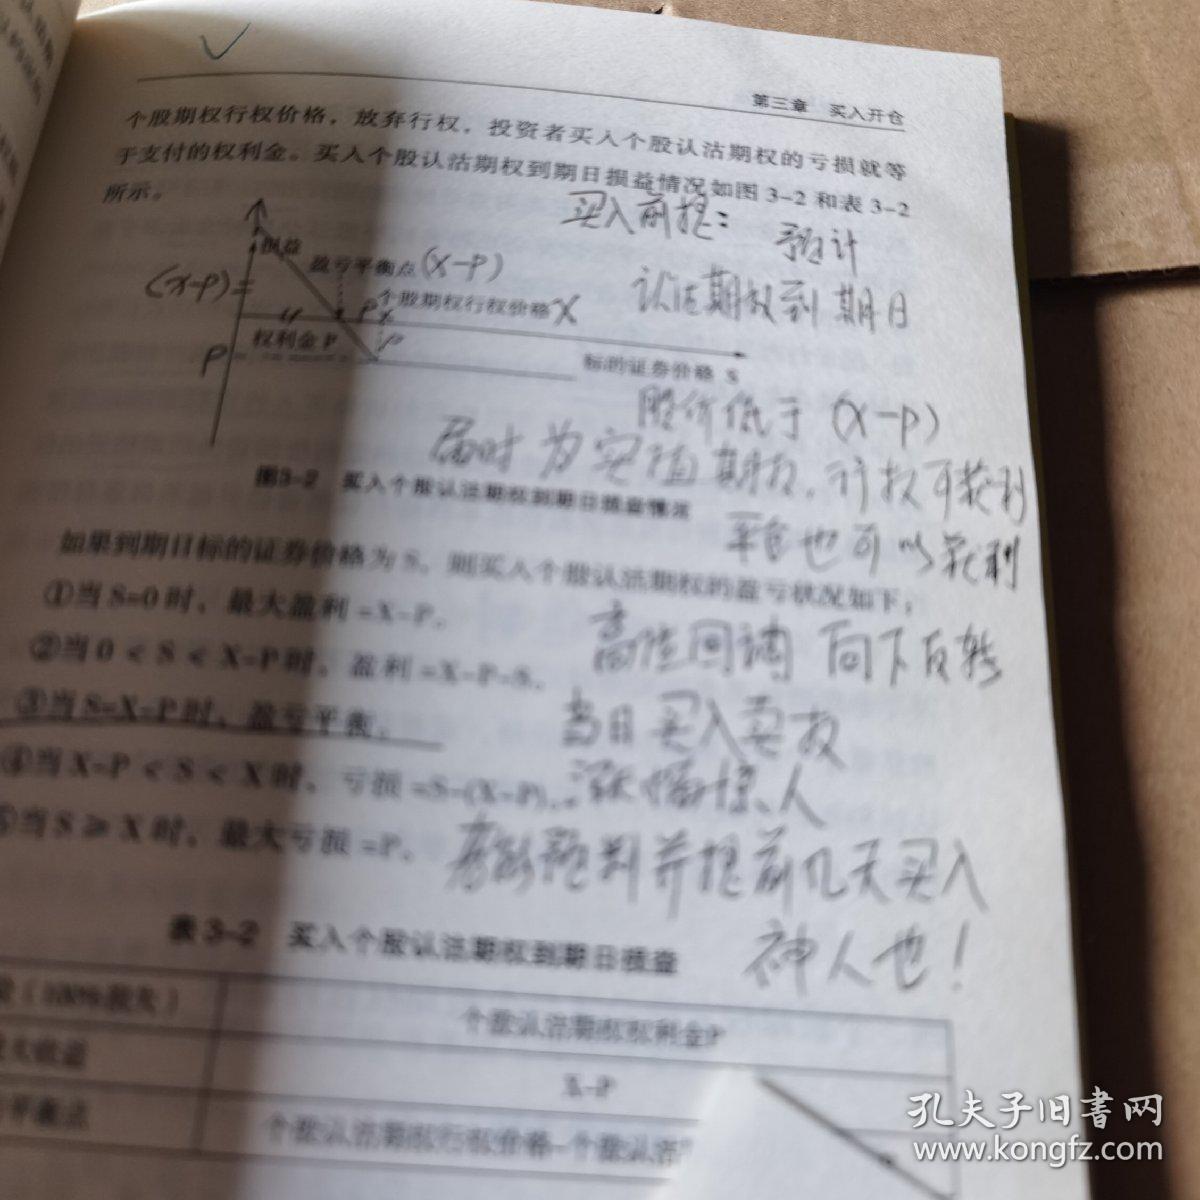 第三章 买入开仓
个股期权行权价格，放弃行权，投资者买入个股认沽期权的亏损就等
于支付的权利金。买入个股认沽期权到期日损益情况如图 3-2 和表 3-2
所示。
买入前提：
预计
损益
盈亏平衡点 (X-P)
(X-P)
个股期权行权价格 X
认沽期权到期日
P
X
权利金 P
P
P
标的证券价格 S
股价低于 (X-P)
届时为实值期权，行权可获利
图3-2 买入个股认沽期权到期日损益情况
平仓也可以获利
如果到期日标的证券价格为 S，则买入个股认沽期权的盈亏状况如下：
①当 S=0 时，最大盈利 =X-P。
高位回调 向下反转
②当 0 < S < X-P 时，盈利 =X-P-S。
③当 S=X-P 时，盈亏平衡。
当日买入卖权
④当 X-P < S < X 时，亏损 =S-(X-P)。
涨幅惊人
⑤当 S ≥ X 时，最大亏损 =P。
预判并提前几天买入
神人也！
表 3-2 买入个股认沽期权到期日损益
（100%损失）
个股认沽期权权利金P
大收益
X-P
平衡点
个股认沽期权行权价格-个股认沽
孔夫子旧書网
www.kongfz.com